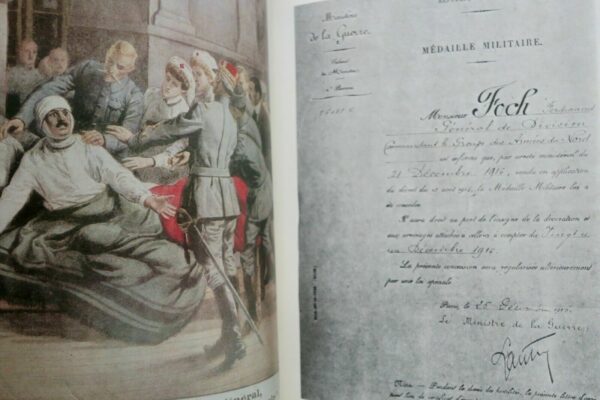 Ministère
de la Guerre.
MÉDAILLE MILITAIRE.
Monsieur Foch Ferdinand
Général de Division
Commandant le Groupe des Armées du Nord
est informé que, par arrêté ministériel du
21 Décembre 1916, rendu en application
du décret du 13 août 1914, la Médaille Militaire lui a
été conférée.
Il aura droit au port de l'insigne de la décoration et
aux avantages attachés à celle-ci à compter du Vingt et
un Décembre 1916.
La présente concession sera régularisée ultérieurement
par
Paris, le 25 Décembre
Le Ministre de la Guerre,
Nota :
général,